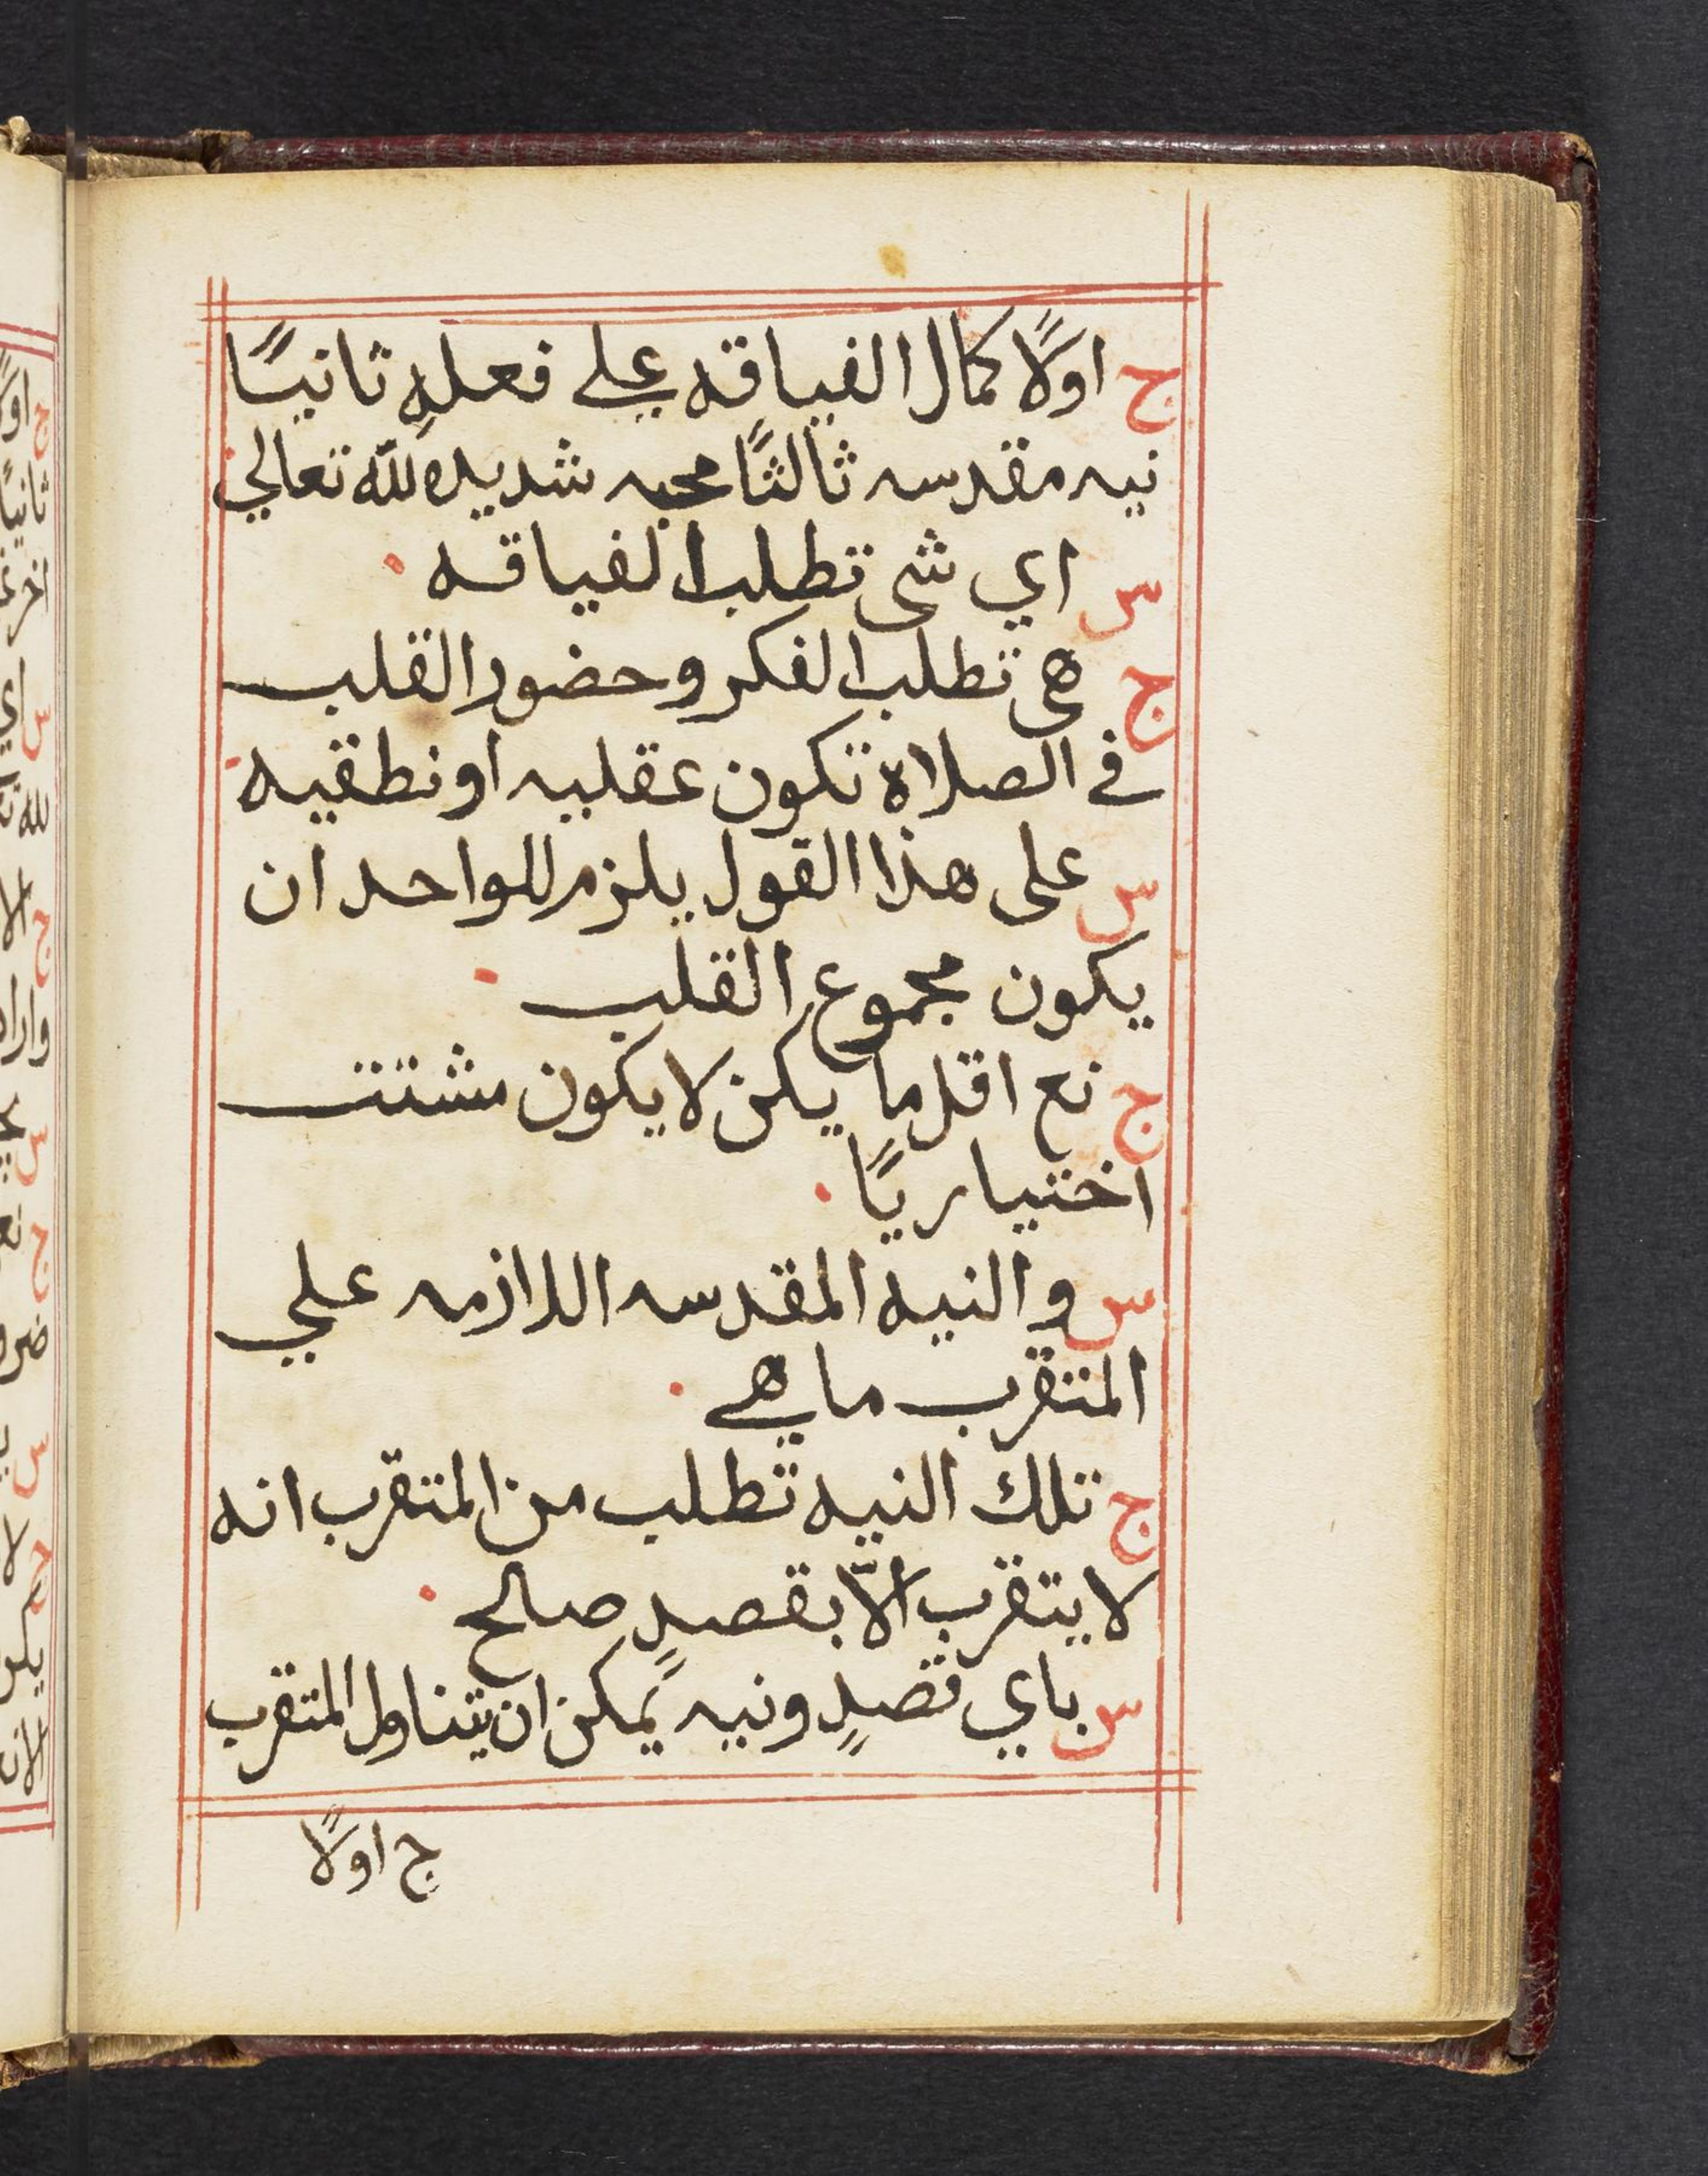 ج اولًا كمال الفياقه علي فعلهِ ثانيًا
نيه مقدسه ثالثًا محبه شديده لله تعالي
س اي شي تطلب الفياقه
ج هي تطلب الفكر وحضور القلب
في الصلاة تكون عقليه او نطقيه
س على هذا القول يلزم للواحد ان
يكون مجموع القلب
ج نعم اقل ما يكن لا يكون مشتت
اختياريًا
س والنيه المقدسه اللازمه علي
المتقرب ما هي
ج تلك النيه تطلب من المتقرب انه
لا يتقرب الّا بقصدٍ صالح
س باي قصدٍ ونيه يمكن ان يتناول المتقرب
ج اولًا